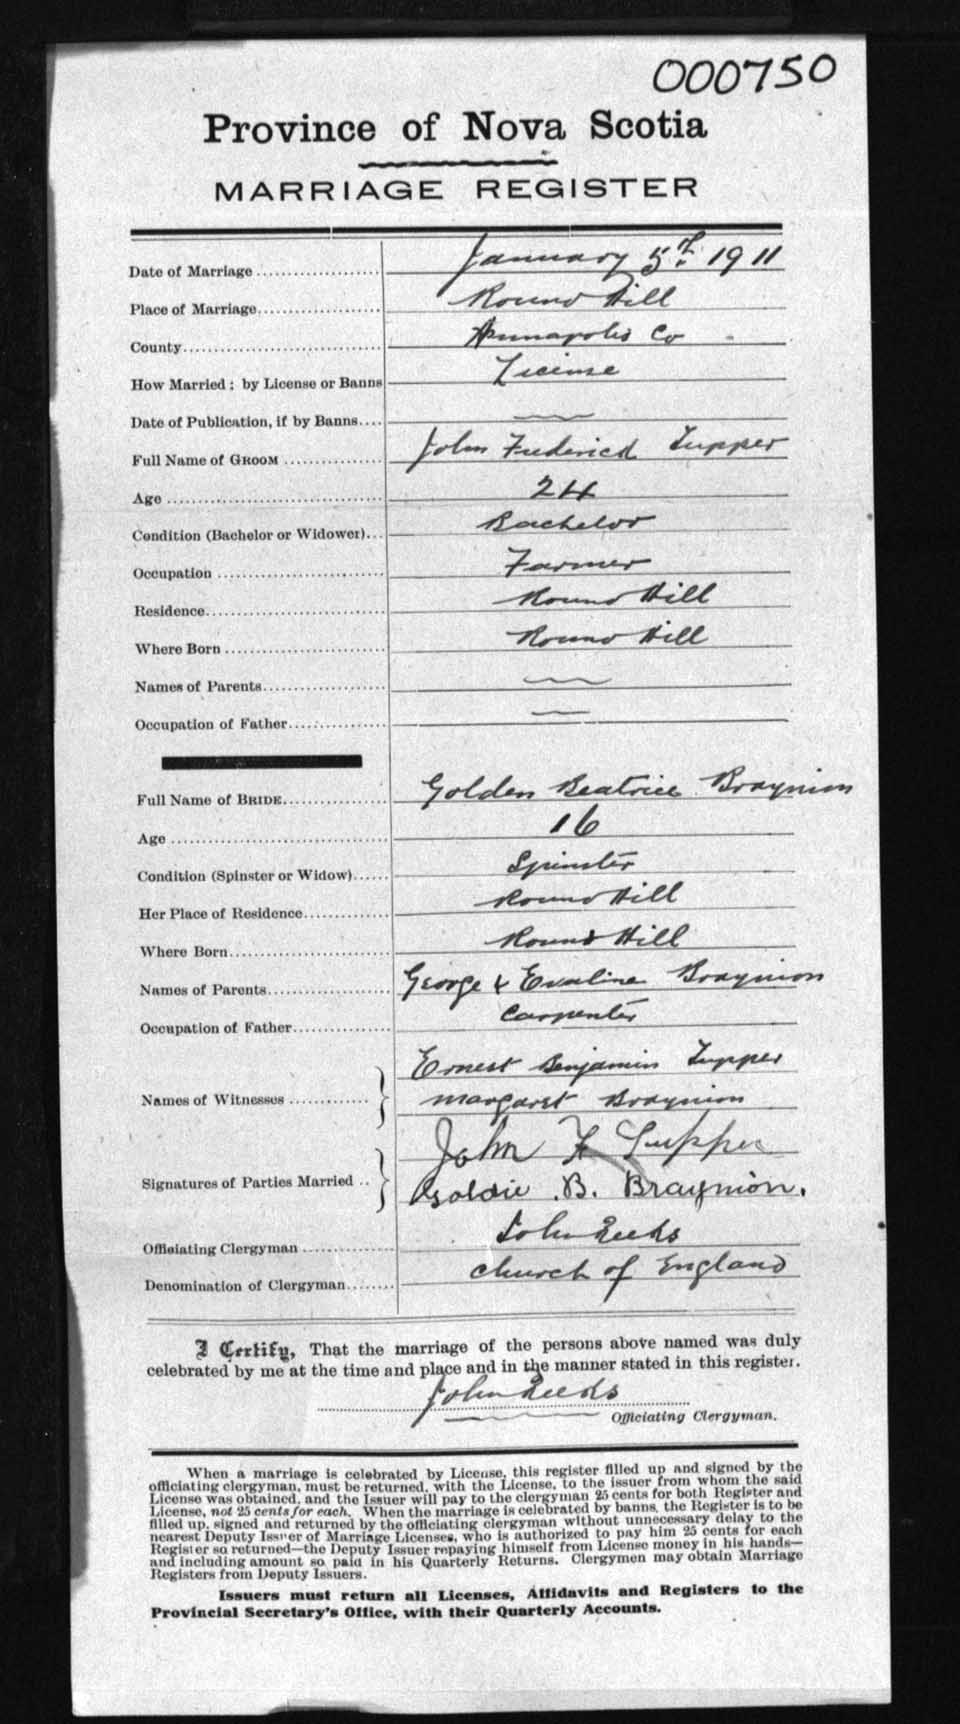 000750
Province of Nova Scotia
MARRIAGE REGISTER
Date of Marriage .................... January 5th. 1911
Place of Marriage.................... Round Hill
County................................ Annapolis Co
How Married; by License or Banns License
Date of Publication, if by Banns....
Full Name of GROOM ................ John Frederick Tupper
Age ................................... 24
Condition (Bachelor or Widower)... Bachelor
Occupation ........................... Farmer
Residence............................. Round Hill
Where Born .......................... Round Hill
Names of Parents....................
Occupation of Father................
Full Name of BRIDE................. Golden Beatrice Braynion
Age ................................... 16
Condition (Spinster or Widow)...... Spinster
Her Place of Residence.............. Round Hill
Where Born.......................... Round Hill
Names of Parents.................... George & Evaline Braynion
Occupation of Father................ Carpenter
Names of Witnesses ............. Ernest Benjamin Tupper
Margaret Braynion
Signatures of Parties Married .. John F Tupper
Goldie .B. Braynion.
Officiating Clergyman .............. John Reeks
Denomination of Clergyman........ Church of England
I Certify, That the marriage of the persons above named was duly
celebrated by me at the time and place and in the manner stated in this register.
John Reeks
Officiating Clergyman.
When a marriage is celebrated by License, this register filled up and signed by the
officiating clergyman, must be returned, with the License, to the issuer from whom the said
License was obtained, and the Issuer will pay to the clergyman 25 cents for both Register and
License, not 25 cents for each. When the marriage is celebrated by banns, the Register is to be
filled up, signed and returned by the officiating clergyman without unnecessary delay to the
nearest Deputy Issuer of Marriage Licenses, who is authorized to pay him 25 cents for each
Register so returned—the Deputy Issuer repaying himself from License money in his hands—
and including amount so paid in his Quarterly Returns. Clergymen may obtain Marriage
Registers from Deputy Issuers.
Issuers must return all Licenses, Affidavits and Registers to the
Provincial Secretary's Office, with their Quarterly Accounts.